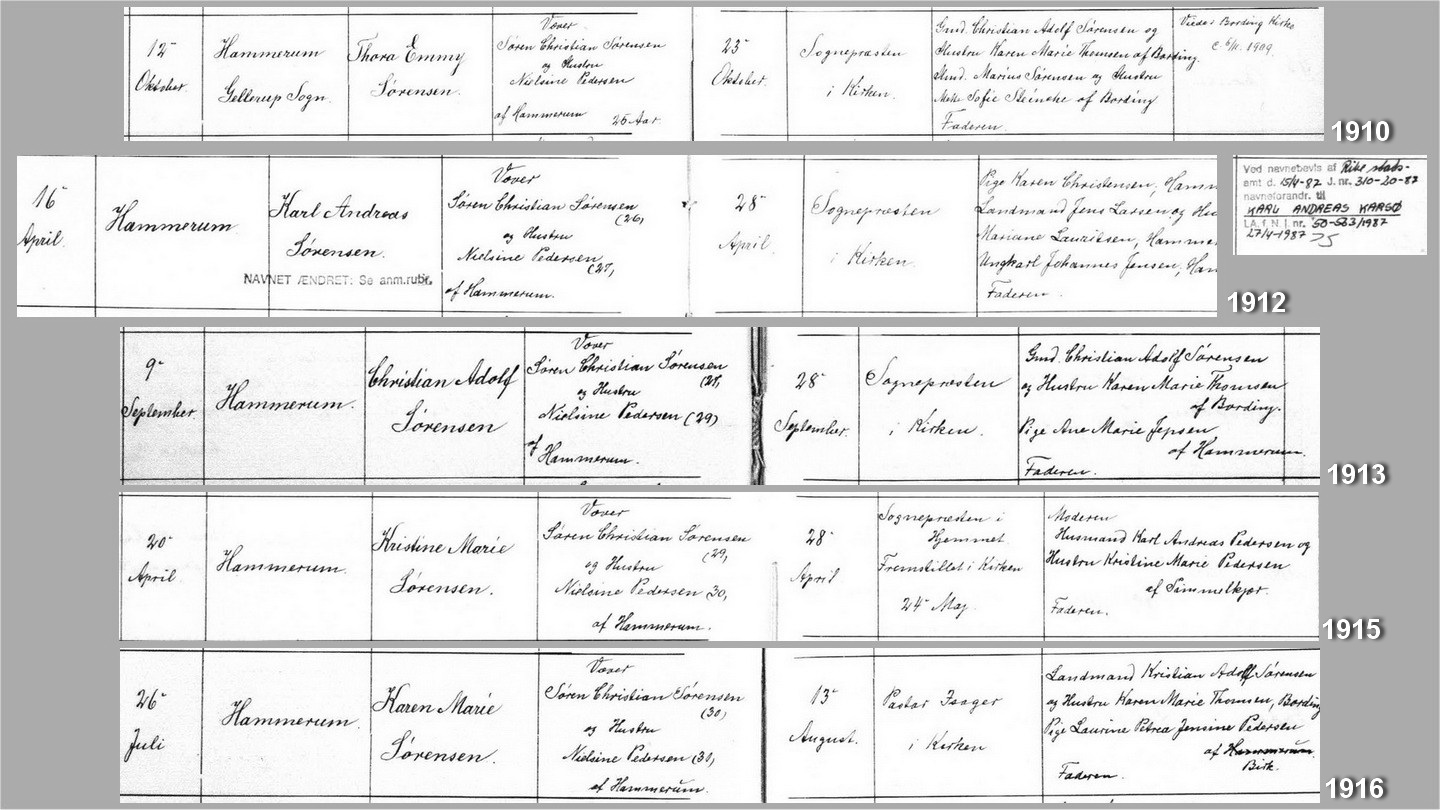 12
Oktober.
Hammerum
Gellerup Sogn.
Thora Emmy
Sørensen.
Væver
Søren Christian Sørensen
og Hustru
Nielsine Pedersen
af Hammerum 25 Aar.
23
Oktober.
Sognepræsten
i Kirken.
Gmd. Christian Adolf Sørensen og
Hustru Karen Marie Thomsen af Bording.
Hmd. Marius Sørensen og Hustru
Sofie Steincke af Bording
Faderen.
Viede i Bording Kirke
1909
1910
16
April.
Hammerum
Karl Andreas
Sørensen.
NAVNET ÆNDRET: Se anm.rubr.
Væver
Søren Christian Sørensen
(26)
og Hustru
Nielsine Pedersen
(27)
af Hammerum.
28
April.
Sognepræsten
i Kirken.
Pige Karen Christensen, Hamm
Landmand Jens Larsen og Hu
Mariane Lauritsen, Hammer
Ungkarl Johannes Jensen, Ham
Faderen.
Ved navnebevis af Ribe stats-
amt d. 15/4-87 J. nr. 310-20-87
navneforandr. til
KARL ANDREAS KARSØ
L.A. f. N. j. nr. 50-533/1987
27/4-1987
1912
9
September.
Hammerum.
Christian Adolf
Sørensen
Væver
Søren Christian Sørensen
(28)
og Hustru
Nielsine Pedersen (29)
af Hammerum.
28
September.
Sognepræsten
i Kirken.
Gmd. Christian Adolf Sørensen
og Hustru Karen Marie Thomsen
af Bording.
Pige Ane Marie Jepsen
af Hammerum.
Faderen.
1913
20
April.
Hammerum.
Kristine Marie
Sørensen.
Væver
Søren Christian Sørensen
(29)
og Hustru
Nielsine Pedersen 30,
af Hammerum.
28
April
Sognepræsten i
Hjemmet.
Fremstillet i Kirken
24 Maj.
Moderen
Husmand Karl Andreas Pedersen og
Hustru Kristine Marie Pedersen
af Simmelkjær.
Faderen.
1915
26
Juli
Hammerum.
Karen Marie
Sørensen.
Væver
Søren Christian Sørensen
(30)
og Hustru
Nielsine Pedersen (30)
af Hammerum.
13
August.
Pastor Isager
i Kirken
Landmand Kristian Adolf Sørensen
og Hustru Karen Marie Thomsen, Bording
Pige Laurine Petrea Jensine Pedersen
af Hammerum
Birk.
Faderen.
1916